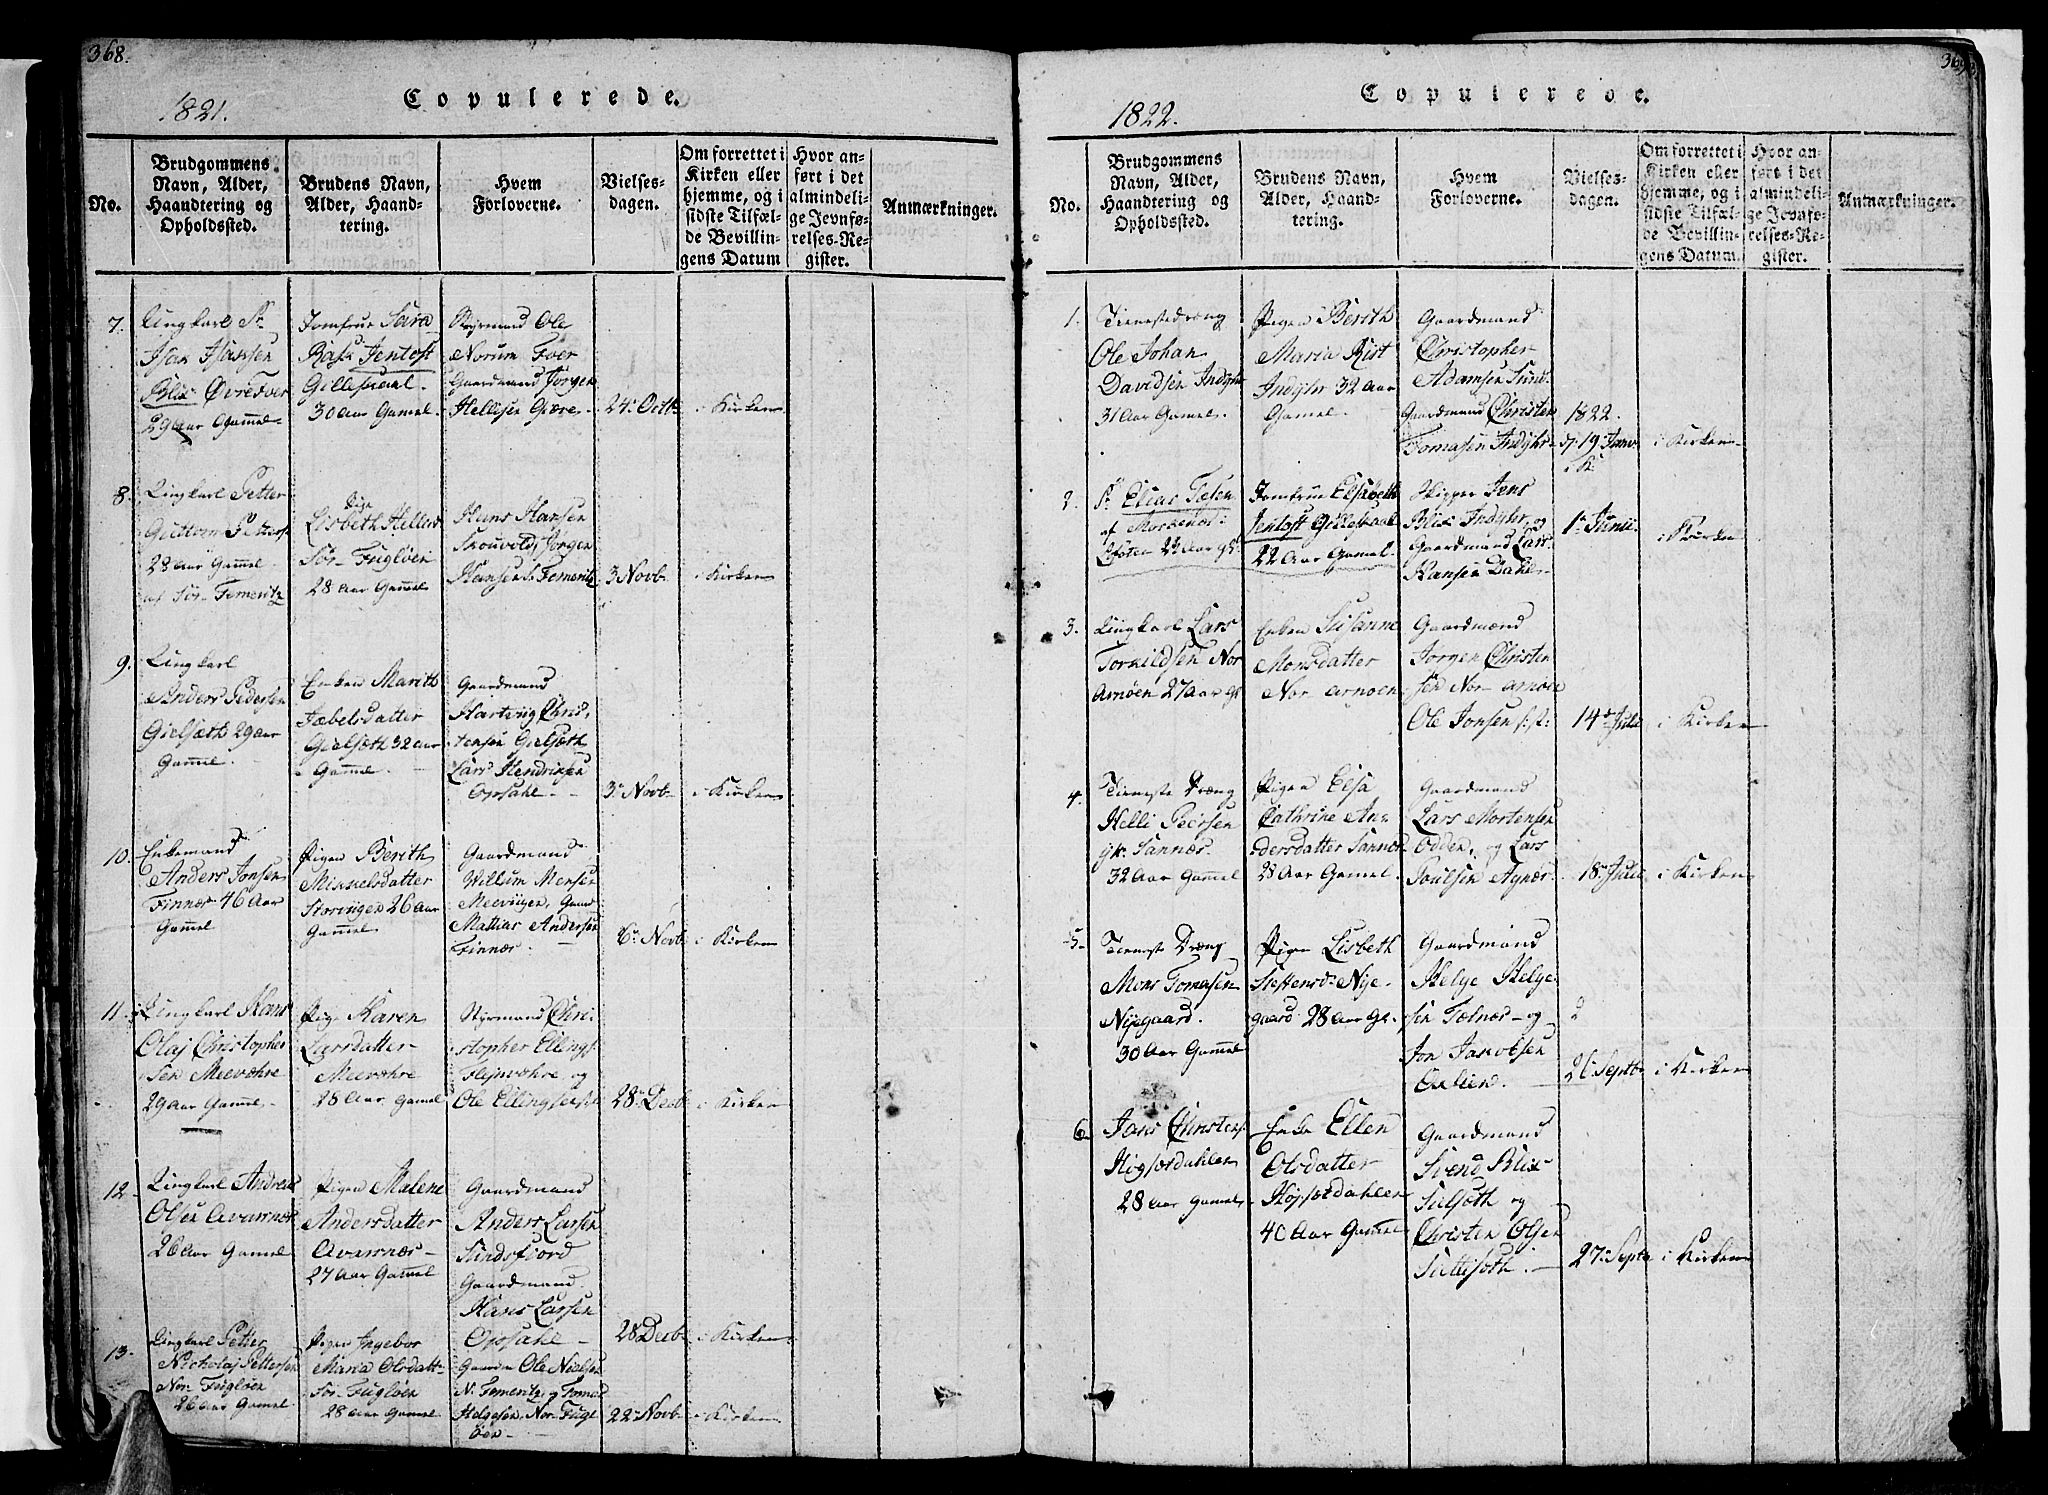 368.
1821.
Copulerede.
No.
Brudgommens
Navn, Alder,
Haandtering og
Opholdssted.
Brudens Navn,
Alder, Haand-
tering.
Hvem
Forloverne.
Vielses-
dagen.
Om forrettet i
Kirken eller
hjemme, og i
sidste Tilfæl-
de Bevillin-
gens Datum
Hvor an-
ført i det
almindeli-
ge Jevnfø-
relses-Re-
gister.
Anmærkninger.
7.
Ungkarl Sr
Isax Hansen
Blix Øvrefver
29 aar Gammel
Jomfrue Sara
Rask Jentoft
Gilleskaal.
30 Aar Gamel.
Styrmand Ole
Norum Fver
Gaardmand Jørgen
Hellisen Giære.
24 Octb
i Kirken
8.
Ungkarl Petter
Guttorm Peters
23 Aar Gammel
af Sør-Femeritz
Pige
Lisbeth Hellers
Sør-Fugløen
28 Aar Gammel
Hans Hansen
Skouvold, Jørgen
Hansen S. Femeritz
3 Novb
i Kirken
9.
Ungkarl
Anders Pedersen
Gielsæth 29 aar
Gammel.
Enken Marith
Fæbelsdatter
Gielsæth 32 aar
Gammel.
Gaardmand
Hartvig Chris-
tensen Gielsæth
Lars Hendriksen
Opsahl.
3 Novb
i Kirken
10.
Enkemand
Anders Jonsen
Finnæs 46 Aar
Gammel
Pigen Berith
Mikkelsdatter
Storvigen 26 aar
Gammel
Gaardmand
Willum Monsen
Meevigen, Gaard
Mathias Andersen
Finnæs.
6 Novb
i Kirken
11.
Ungkarl Hans
Olaj Christopher
sen Meevæhre
29 aar Gammel
Pige Karen
Larsdatter
Meevæhre
28 Aar Gamel
Styrmand Chri-
stopher Ellings
Flejnvæhre og
Ole Ellingsen
28 Decb
i Kirken
12
Ungkarl Andreas
Olsen Avarnæs
26 Aar Gamel
Pigen Malene
Andersdatter
Avarnæs
27 Aar Gammel
Gaardmand
Anders Larsen
Sundsfjord
Gaardmand
Hans Larsen
Opsahl
28 Decb
i Kirken
13.
Ungkarl Petter
Nicholaj Pettersen
Nor-Fugløen
26 Aar Gamel
Pigen Ingebor
Maria Olsdatt
Sør-Fugløen
28 Aar Gammel
Gaardm Ole Nielsen
N. Femeritz, og Tomas
Helgesen, Nor-Fugl
øen
22 Novb
i Kirken
369
1822.
Copulerede.
No.
Brudgommens
Navn, Alder,
Haandtering og
Opholdssted.
Brudens Navn,
Alder, Haand-
tering.
Hvem
Forloverne.
Vielses-
dagen.
Om forrettet i
Kirken eller
hjemme, og i
sidste Tilfæl-
de Bevillin-
gens Datum.
Hvor an-
ført i det
almindeli-
ge Jevnfø-
relses-Re-
gister.
Anmærkninger.
1.
Tienestedreng
Ole Johan
Davidsen Indyhr
31 Aar Gamel.
Pigen Berith
Maria Rist
Indyhr 32 Aar
Gamel.
Gaardmand
Christopher
Adamsen Sund
Gaardmand Christen
Tomasen Indyhr
1822.
19 Janv
i Kirken
2.
Sr Elias Tosten
22 Aar
Jomfrue Elsabeth
Jentoft Gilleskaal
22 Aar Gamel.
Skipper Jens
Blix Indyhr, og
Gaardmand Lars
Hansen Dahl
1 Junii
i Kirken
3.
Ungkarl Lars
Torkildsen Nor
Arnøen 27 Aar Gl
Enken Susanne
Monsdatter
Nor arnøen
Gaardmænd
Jørgen Christen
sen Nor-arnøen
Ole Jonsen
14 Julii
i Kirken
4.
Tieneste Dreng
Helli Peersen
Sannæs.
32 Aar Gammel
Pigen Elsa
Cathrine An-
dersdatter Sannæs
28 Aar Gamel.
Gaardmand
Lars Mortensen
Odden, og Lars
Poulsen Agnæs
18 Julii
i Kirken
5
Tieneste Dreng
Mons Tomasen
Nijegaard.
30 Aar Gammel
Pigen Lisbeth
Steffensd Nije-
gaard 28 Aar Gl.
Gaardmand
Helge Helge-
sen Fælnæs og
Jon Jacobsen
26 Septb
i Kirken
6.
Jans Christens
Høgsetdahlen
28 Aar Gamel
Enke Ellen
Olsdatter
Høgsetdahlen
40 Aar Gammel
Gaardmand
Svend Blix
Sælsøth og
Christen Olsen
27 Septb
i Kirken